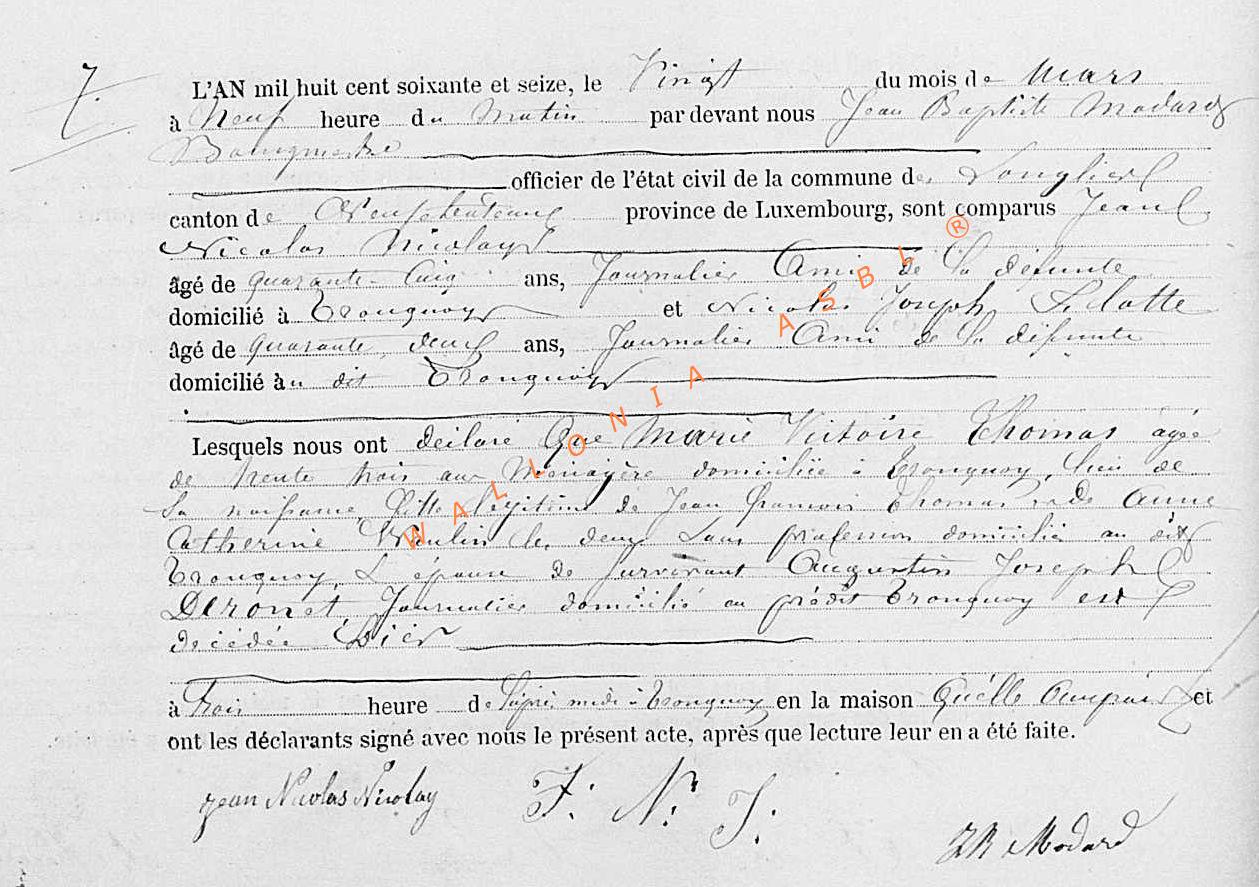 7.
L'AN mil huit cent soixante et seize, le Vingt du mois de Mars
à Neuf heure du Matin par devant nous Jean Baptiste Modard
Bourgmestre
officier de l'état civil de la commune de Longlier
canton de Neufchateau province de Luxembourg, sont comparus Jean
Nicolas Nicolay
âgé de quarante Cinq ans, Journalier Ami de la défunte
domicilié à Tronquoy et Nicolas Joseph
âgé de quarante deux ans, Journalier Ami de la défunte
domicilié au dit Tronquoy
Lesquels nous ont déclaré Que Marie Victoire Thomas agée
de trente trois ans Ménagère domiciliée à Tronquoy, lieu de
sa naissance, fille légitime de Jean Thomas et de Anne
Catherine les deux sans profession domicilié au dit
Tronquoy, épouse de survivant Augustin Joseph
Deronet, Journalier domicilié au prédit Tronquoy est
décédée hier
à trois heure de l'après midi à Tronquoy en la maison Quelle et
ont les déclarants signé avec nous le présent acte, après que lecture leur en a été faite.
jean Nicolas Nicolay F: N: J:
JB Modard
WALLONIA ASBL ®